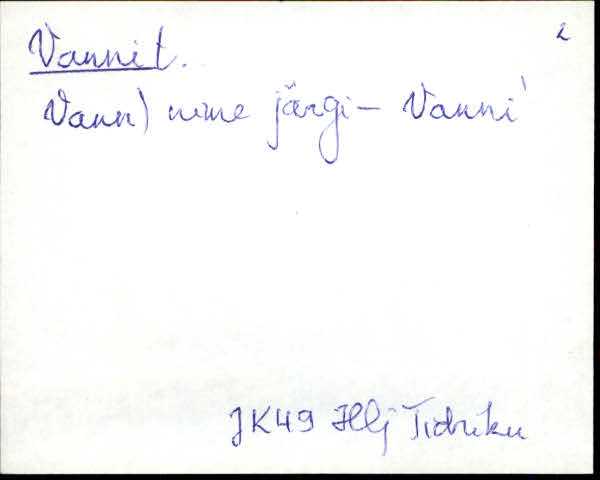 Vanni t. 2
Vann) nime järgi - Vanni'
JK49 Hlj Tidriku